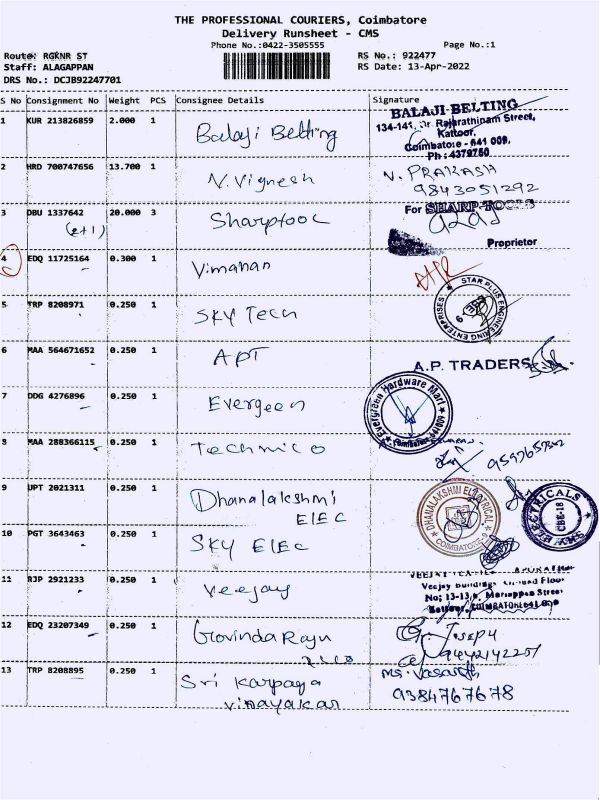 THE PROFESSIONAL COURIERS, Coimbatore
Delivery Runsheet - CMS
Phone No.:0422-3505555
Page No.:1
Route: RGKNR ST
RS No.: 922477
Staff: ALAGAPPAN
RS Date: 13-Apr-2022
DRS No.: DCJB92247701
S No Consignment No Weight PCS Consignee Details Signature
1 KUR 213826859 2.000 1 Balaji Belting
BALAJI BELTING
134-141, Dr. Rajarathinam Street,
Kattoor,
Coimbatore - 641 009.
Ph : 4379750
2 HRD 700747656 13.700 1 N. Vignesh N. PRAKASH
9843051292
3 DBU 1337642 20.000 3 Sharptool For SHARP TOOLS
(2+1)
Proprietor
4 EDQ 11725164 0.300 1 Vimahan
5 TRP 8208971 0.250 1 SKY Tech STAR PLUS ENGINEERING ENTERPRISES
6 MAA 564671652 0.250 1 APT A.P. TRADERS
7 DDG 4276896 0.250 1 Evergeen Evergreen Hardware Mart
Coimbatore
8 MAA 288366115 0.250 1 Technico
9 UPT 2021311 0.250 1 Dhanalakshmi
ELEC
DHANALAKSHMI ELECTRICAL
COIMBATORE-9
SKY ELECTRICALS
CBE-18
10 PGT 3643463 0.250 1 SKY ELEC
11 RJP 2921233 0.250 1 Veejay
Veejay Buildings, Ground Floor
No; 13-13, Mariappan Street
Kattoor, COIMBATORE-641 009
12 EDQ 23207349 0.250 1 Govinda Raju G. Joseph
9442142257
13 TRP 8208895 0.250 1 Sri Karpaga
Vinayakar
Ms. Vasanth
9384767678